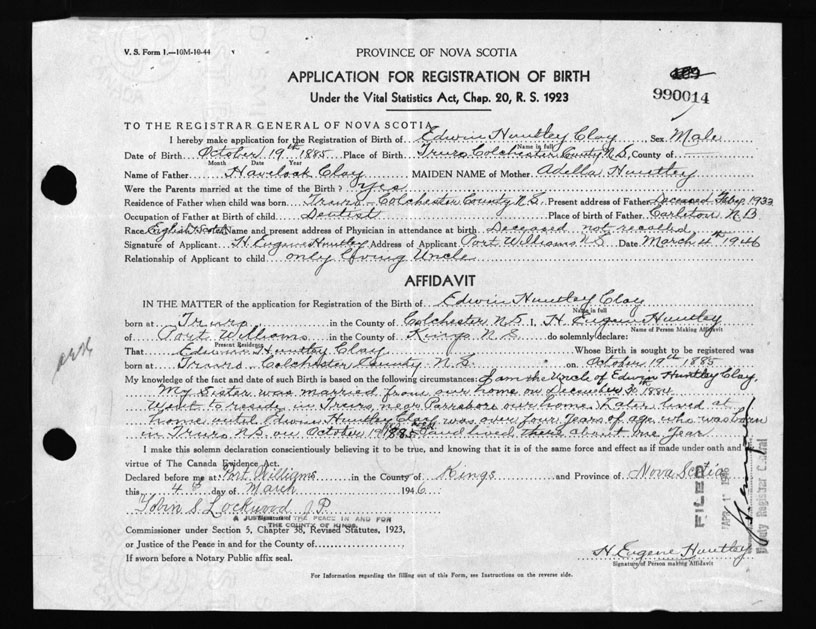 V. S. Form 1.—10M-10-44
PROVINCE OF NOVA SCOTIA
APPLICATION FOR REGISTRATION OF BIRTH
Under the Vital Statistics Act, Chap. 20, R. S. 1923
990014
TO THE REGISTRAR GENERAL OF NOVA SCOTIA
I hereby make application for the Registration of Birth of Edwin Huntley Clay Sex Male
Name in full
Date of Birth October 19th 1885 Place of Birth Truro Colchester County N.S. County of
Month Date Year
Name of Father Havelock Clay MAIDEN NAME of Mother Adella Huntley
Were the Parents married at the time of the Birth? Yes
Residence of Father when child was born Truro - Colchester County N.S. Present address of Father Deceased 1933
Occupation of Father at Birth of child Dentist Place of birth of Father Carleton N.B.
Race English Scotch Name and present address of Physician in attendance at birth Deceased not recalled
Signature of Applicant H. Eugene Huntley Address of Applicant Port Williams N.S. Date March 4th 1946
Relationship of Applicant to child only living Uncle
AFFIDAVIT
IN THE MATTER of the application for Registration of the Birth of Edwin Huntley Clay
Name in full
born at Truro in the County of Colchester N.S. I, H Eugene Huntley
Name of Person Making Affidavit
of Port Williams in the County of Kings N.S. do solemnly declare:
Present Residence
That Edwin Huntley Clay Whose Birth is sought to be registered was
born at Truro, Colchester County N.S. on October 19th 1885
My knowledge of the fact and date of such Birth is based on the following circumstances: I am the Uncle of Edwin Huntley Clay.
My Sister was married from our home on December 30th 1884
Went to reside in Truro, near Parrsboro our home. Later lived at
home until Edwin Huntley Clay was over four years of age who was born
in Truro N.S. on October 19th 1885 and lived there about one year
I make this solemn declaration conscientiously believing it to be true, and knowing that it is of the same force and effect as if made under oath and by
virtue of The Canada Evidence Act.
Declared before me at Port Williams in the County of Kings and Province of Nova Scotia
this 4th day of March 1946
John S Lockwood J.P.
A JUSTICE OF THE PEACE IN AND FOR
THE COUNTY OF KINGS
Commissioner under Section 5, Chapter 38, Revised Statutes, 1923,
or Justice of the Peace in and for the County of
If sworn before a Notary Public affix seal.
H. Eugene Huntley
Signature of Person making Affidavit
For Information regarding the filling out of this Form, see Instructions on the reverse side.
FILED
Deputy Registrar General